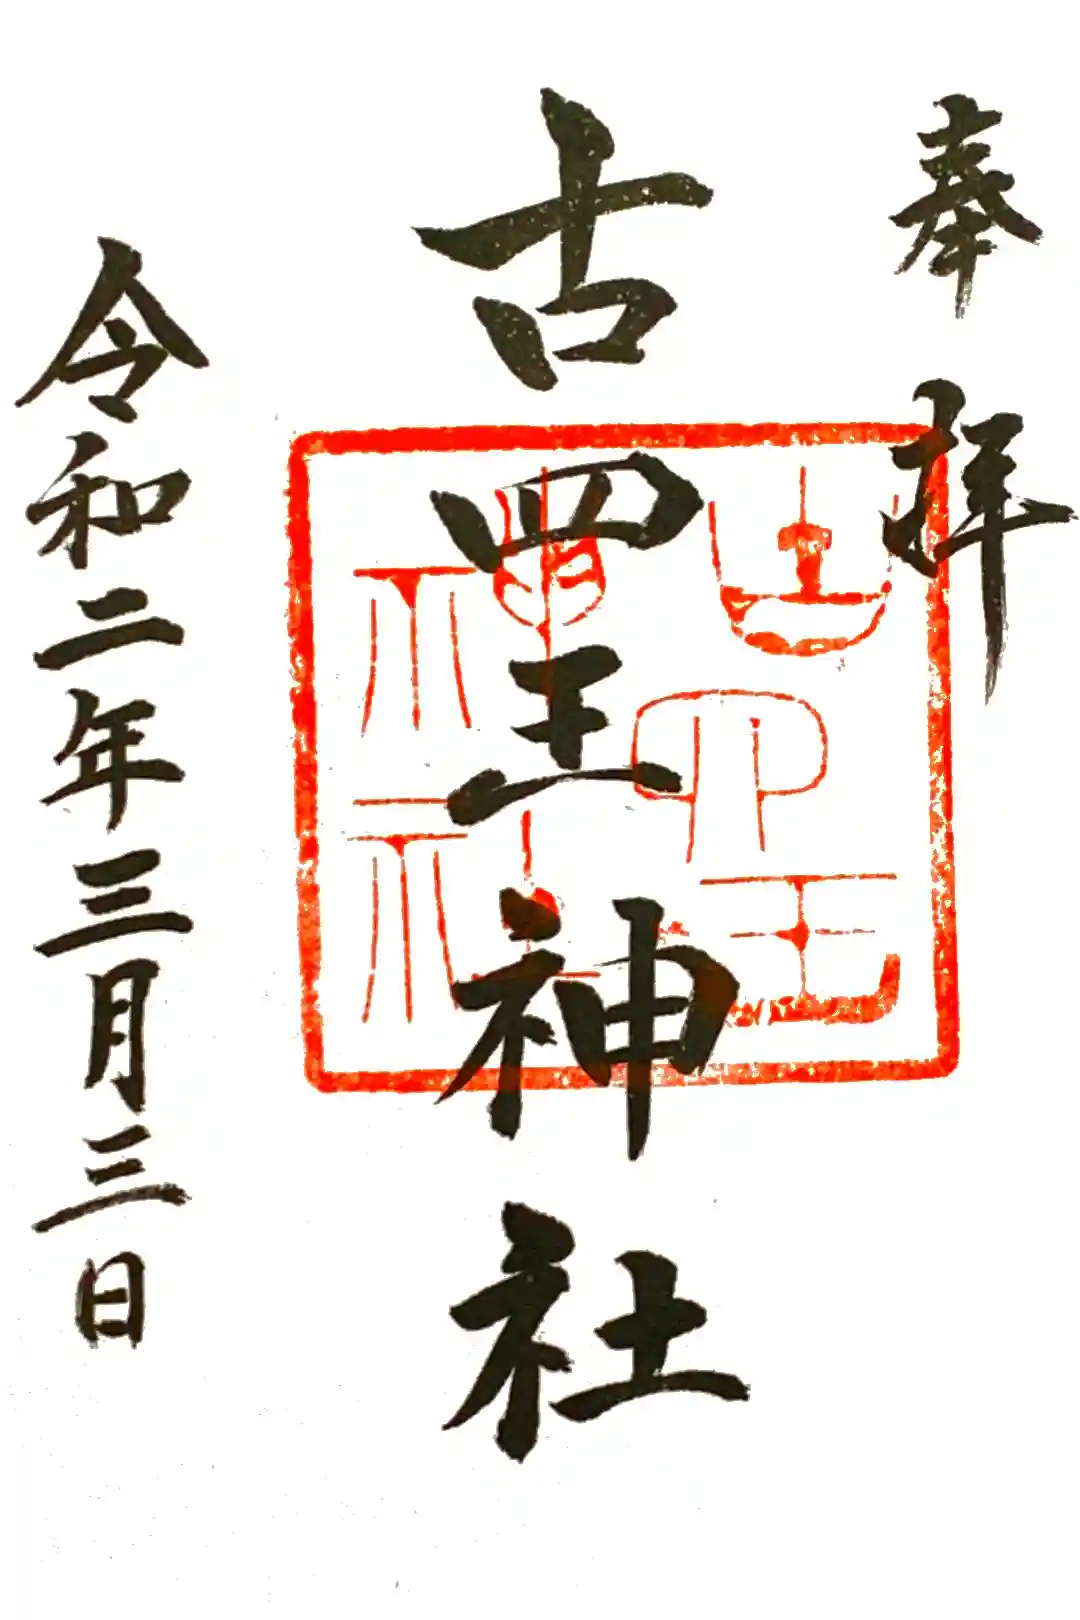 奉拝
古四王神社
古四王神社
令和二年三月三日